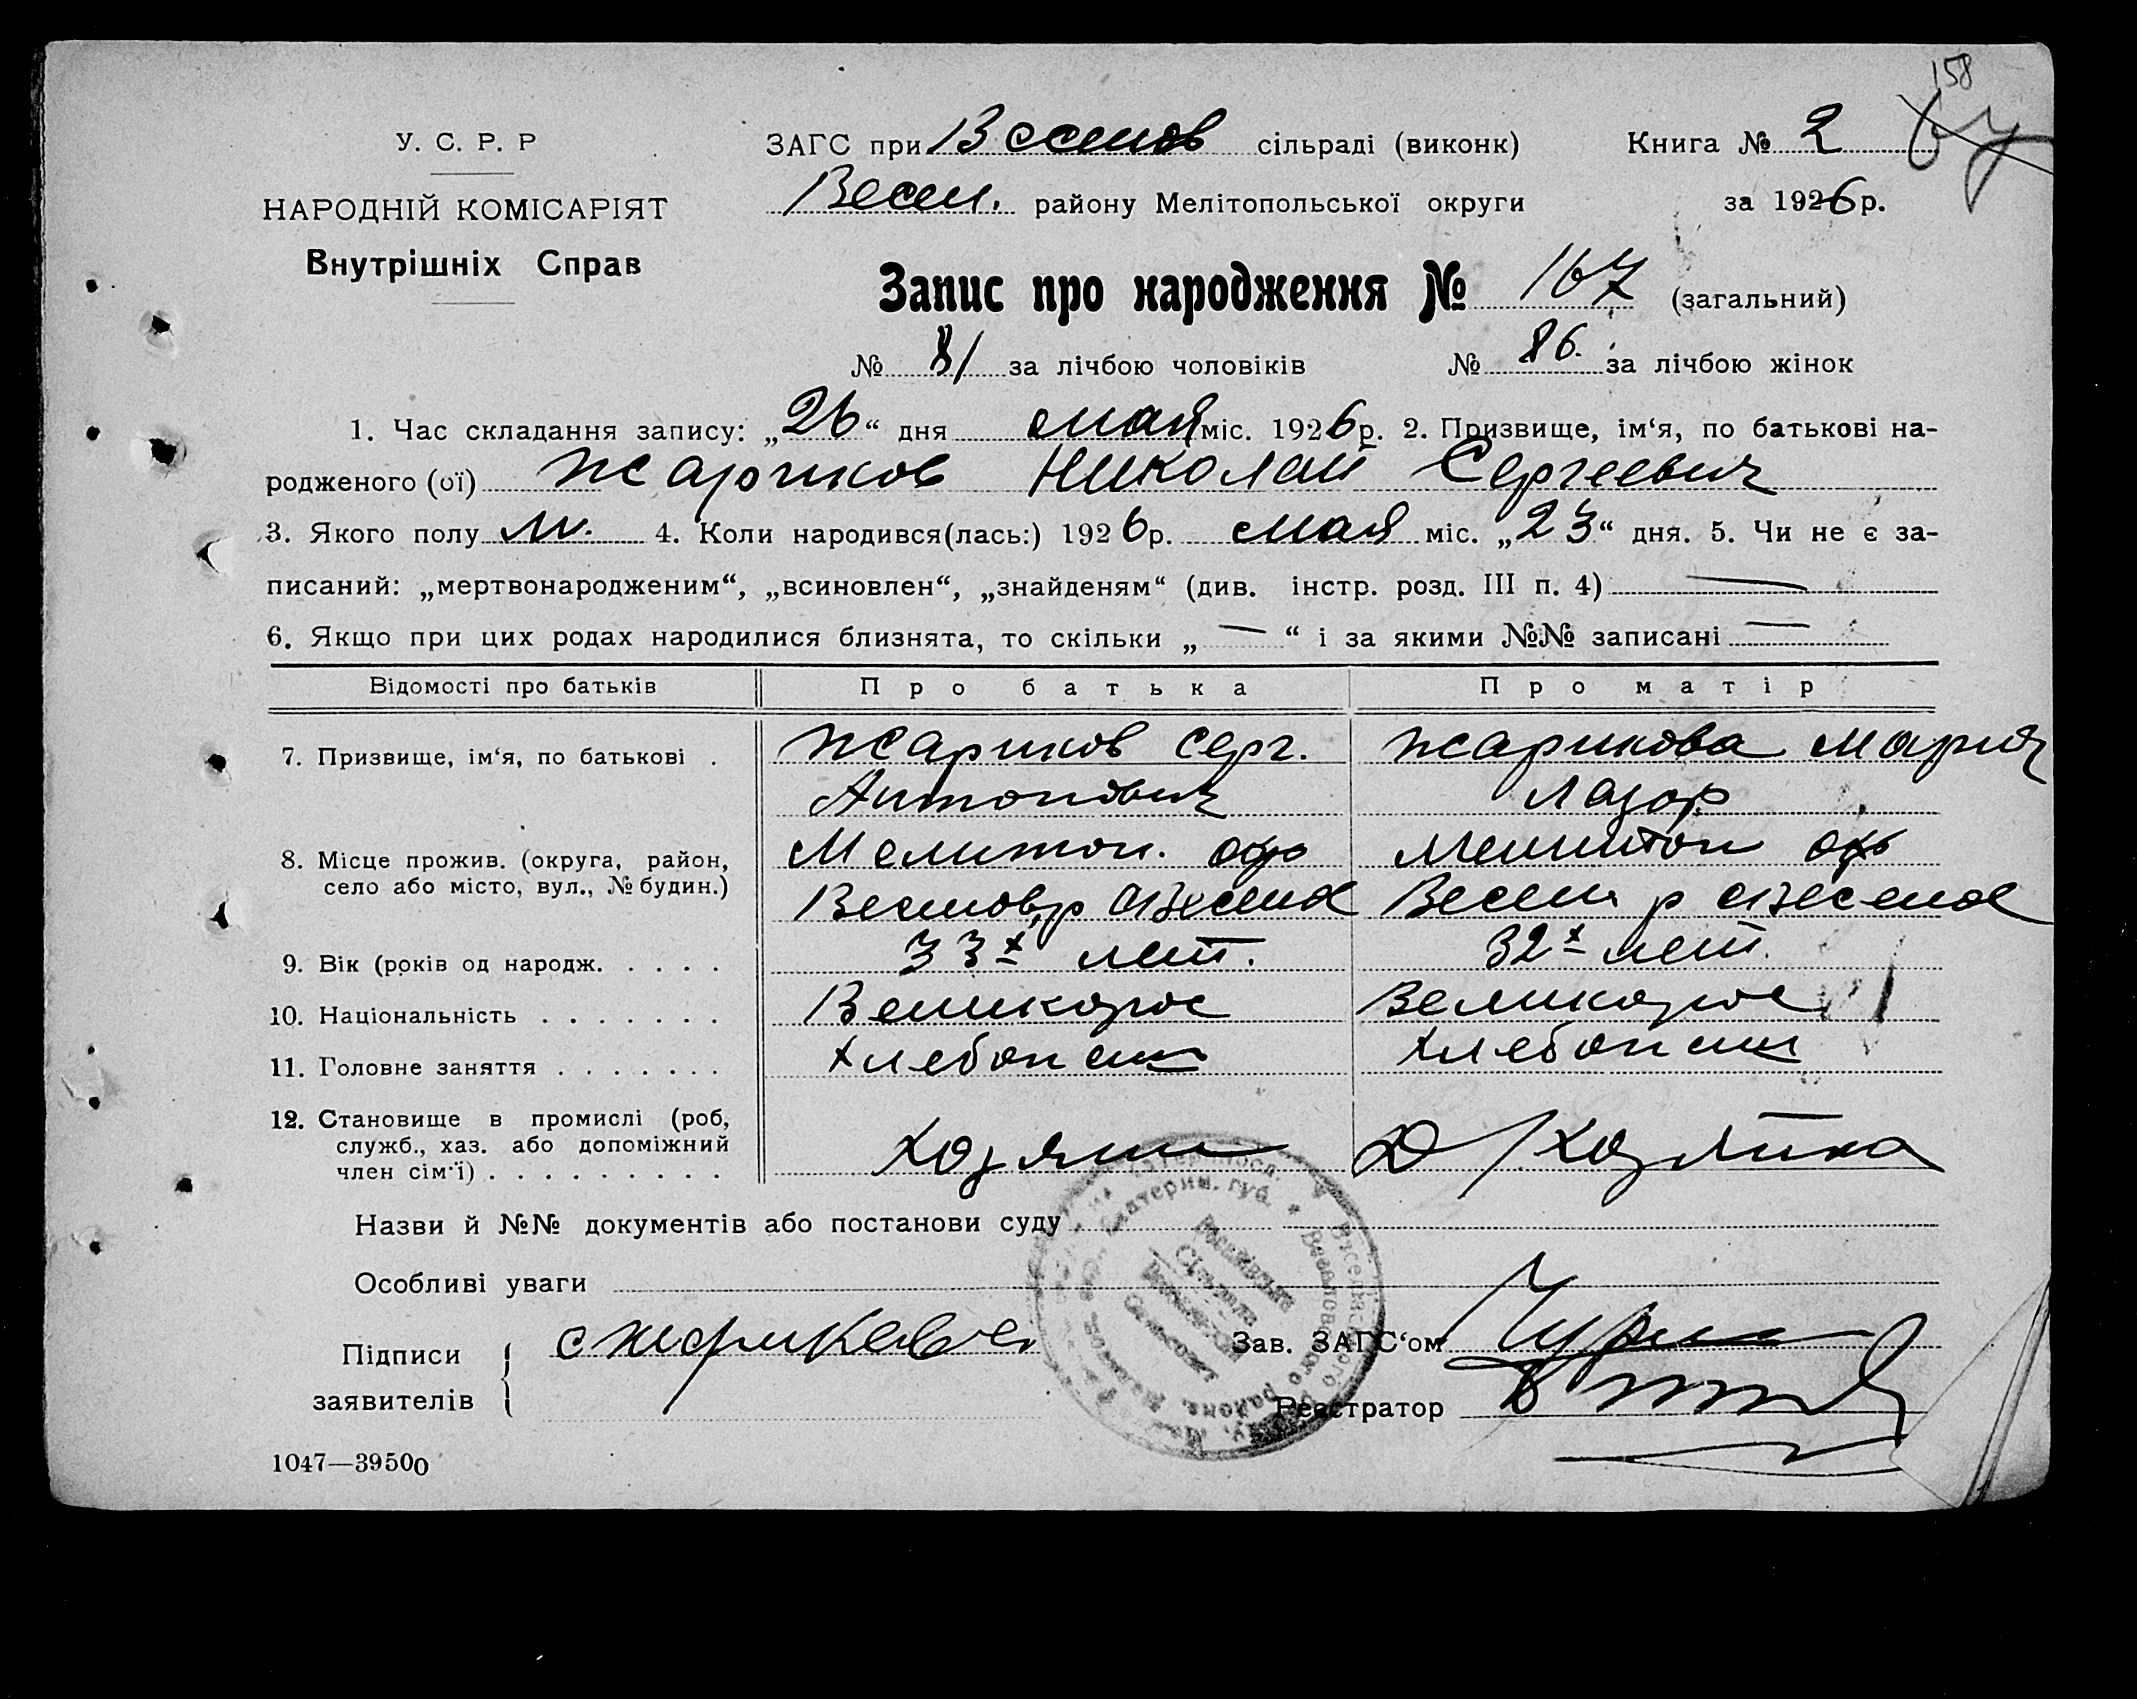 158
У. С. Р. Р
НАРОДНІЙ КОМІСАРІЯТ
Внутрішніх Справ
ЗАГС при Веселов сільраді (виконк) Книга № 2
Весел. району Мелітопольської округи за 1926 р.
Запис про народження № 167 (загальний)
№ 81 за лічбою чоловіків № 86. за лічбою жінок
1. Час складання запису: „26“ дня мая міс. 1926 р. 2. Призвище, ім‘я, по батькові на-
родженого (ої) Жариков Николай Сергеевич
3. Якого полу м. 4. Коли народився(лась:) 1926 р. мая міс. „23“ дня. 5. Чи не є за-
писаний: „мертвонародженим“, „всиновлен“, „знайденям“ (див. інстр. розд. III п. 4) —
6. Якщо при цих родах народилися близнята, то скільки „ — “ і за якими №№ записані —
Відомості про батьків Про батька Про матір
7. Призвище, ім‘я, по батькові . Жариков Серг. Жарикова Мария
Антонович Лазар
8. Місце прожив. (округа, район, Мелитоп. окр Мелитоп окр
село або місто, вул., № будин.) Веселов р с Веселое Весел р с Веселое
9. Вік (років од народж. . . . . 33х лет. 32х лет.
10. Національність . . . . . . . Великорос Великорос
11. Головне заняття . . . . . . . Хлебопаш Хлебопаш
12. Становище в промислі (роб,
служб., хаз. або допоміжний
член сім‘ї) . . . . . . . . . Хозяин Д/хозяйка
Назви й №№ документів або постанови суду
Особливі уваги
Підписи
заявителів
Зав. ЗАГС‘ом
Реєстратор
1047—39500